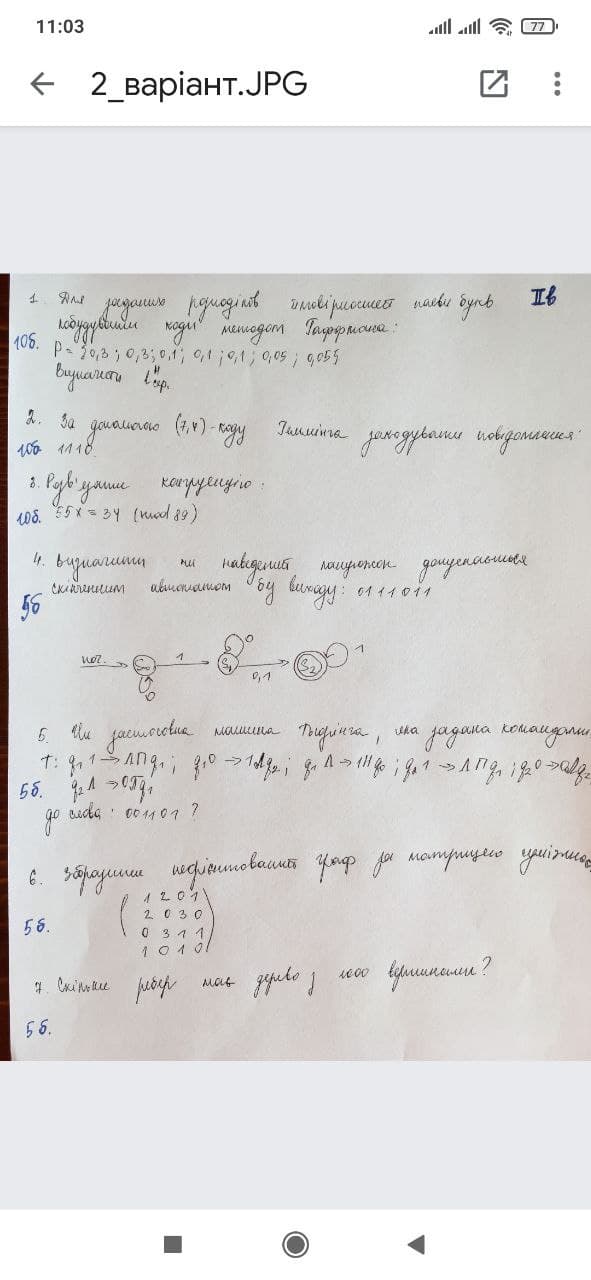 11:03
77
2_варіант.JPG
1. Для заданих розподілів ймовірностей появи букв IIв
побудувати коди методом Гаффмана:
10б. P = {0,3; 0,3; 0,1; 0,1; 0,1; 0,05; 0,05}
Визначити l сер.
2. За допомогою (7,4)-коду Геммінга закодувати повідомлення:
10б 1110.
3. Розв'язати конгруенцію:
10б. 55x = 34 (mod 89)
4. Визначити чи наведений ланцюжок допускається
скінченним автоматом без виходу: 0111011
5б
поч. S0 1 S1 0 0,1 S2 1
0
5. Чи застосовна машина Тьюрінга, яка задана командами
T: q1 1 → ΛПq1; q1 0 → 1Λq2; q1 Λ → 1Нq0; q2 1 → ΛПq1; q2 0 →
5б. q2 Λ → 0Пq1
до слова: 001101?
6. Зобразити неорієнтований граф за матрицею суміжності
1 2 0 1
2 0 3 0
5б. 0 3 1 1
1 0 1 0
7. Скільки ребер має дерево з 1000 вершинами?
5б.